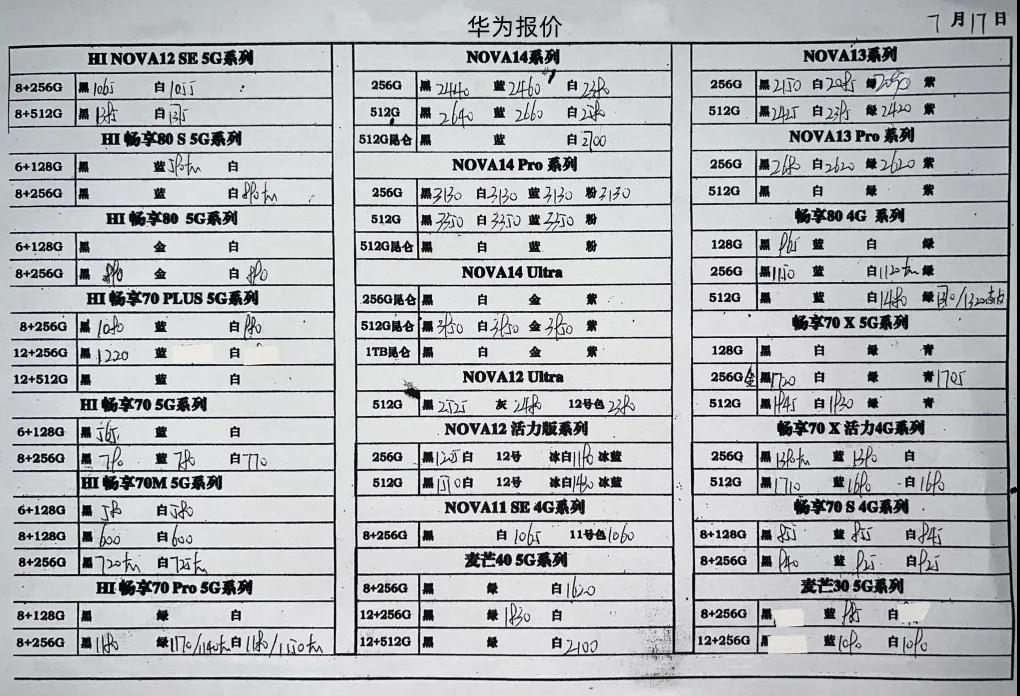 华为报价
7月17日
HI NOVA12 SE 5G系列
8+256G 黑1065 白1055
8+512G 黑 白
HI 畅享80 S 5G系列
6+128G 黑 蓝 白
8+256G 黑 蓝 白
HI 畅享80 5G系列
6+128G 黑 金 白
8+256G 黑 金 白
HI 畅享70 PLUS 5G系列
8+256G 黑1080 蓝 白
12+256G 黑1220 蓝 白
12+512G 黑 蓝 白
HI 畅享70 5G系列
6+128G 黑565 蓝 白
8+256G 黑780 蓝780 白770
HI 畅享70M 5G系列
6+128G 黑580 白580
8+128G 黑600 白600
8+256G 黑720 白725
HI 畅享70 Pro 5G系列
8+128G 黑 绿 白
8+256G 黑1180 绿1170/1140 白1180/1150
NOVA14系列
256G 黑2440 蓝2460 白2380
512G 黑2640 蓝2660 白2580
512G昆仑 黑 蓝 白2700
NOVA14 Pro 系列
256G 黑3130 白3130 蓝3130 粉3130
512G 黑3350 白3350 蓝3350 粉
512G昆仑 黑 白 蓝 粉
NOVA14 Ultra
256G昆仑 黑 白 金 紫
512G昆仑 黑3850 白3850 金3850 紫
1TB昆仑 黑 白 金 紫
NOVA12 Ultra
512G 黑2525 灰2480 12号色2380
NOVA12 活力版系列
256G 黑1205 白 12号 冰白1180 冰蓝
512G 黑1510 白 12号 冰白1480 冰蓝
NOVA11 SE 4G系列
8+256G 黑 白1065 11号色1060
麦芒40 5G系列
8+256G 黑 绿 白1620
12+256G 黑 绿1830 白
12+512G 黑 绿 白2100
NOVA13系列
256G 黑2150 白2085 绿2090 紫
512G 黑2425 白2385 绿2420 紫
NOVA13 Pro 系列
256G 黑2680 白2620 绿2620 紫
512G 黑 白 绿 紫
畅享80 4G 系列
128G 黑 蓝 白 绿
256G 黑1150 蓝 白1120 绿
512G 黑 蓝 白1480 绿
畅享70 X 5G系列
128G 黑 白 绿 青
256G 全 黑1720 白 绿 青1705
512G 黑1845 白1830 绿 青
畅享70 X 活力4G系列
256G 黑1380 蓝1380 白
512G 黑1710 蓝1680 白1680
畅享70 S 4G系列
8+128G 黑855 蓝855 白845
8+256G 黑940 蓝925 白925
麦芒30 5G系列
8+256G 黑 蓝985 白
12+256G 黑 蓝1090 白1090